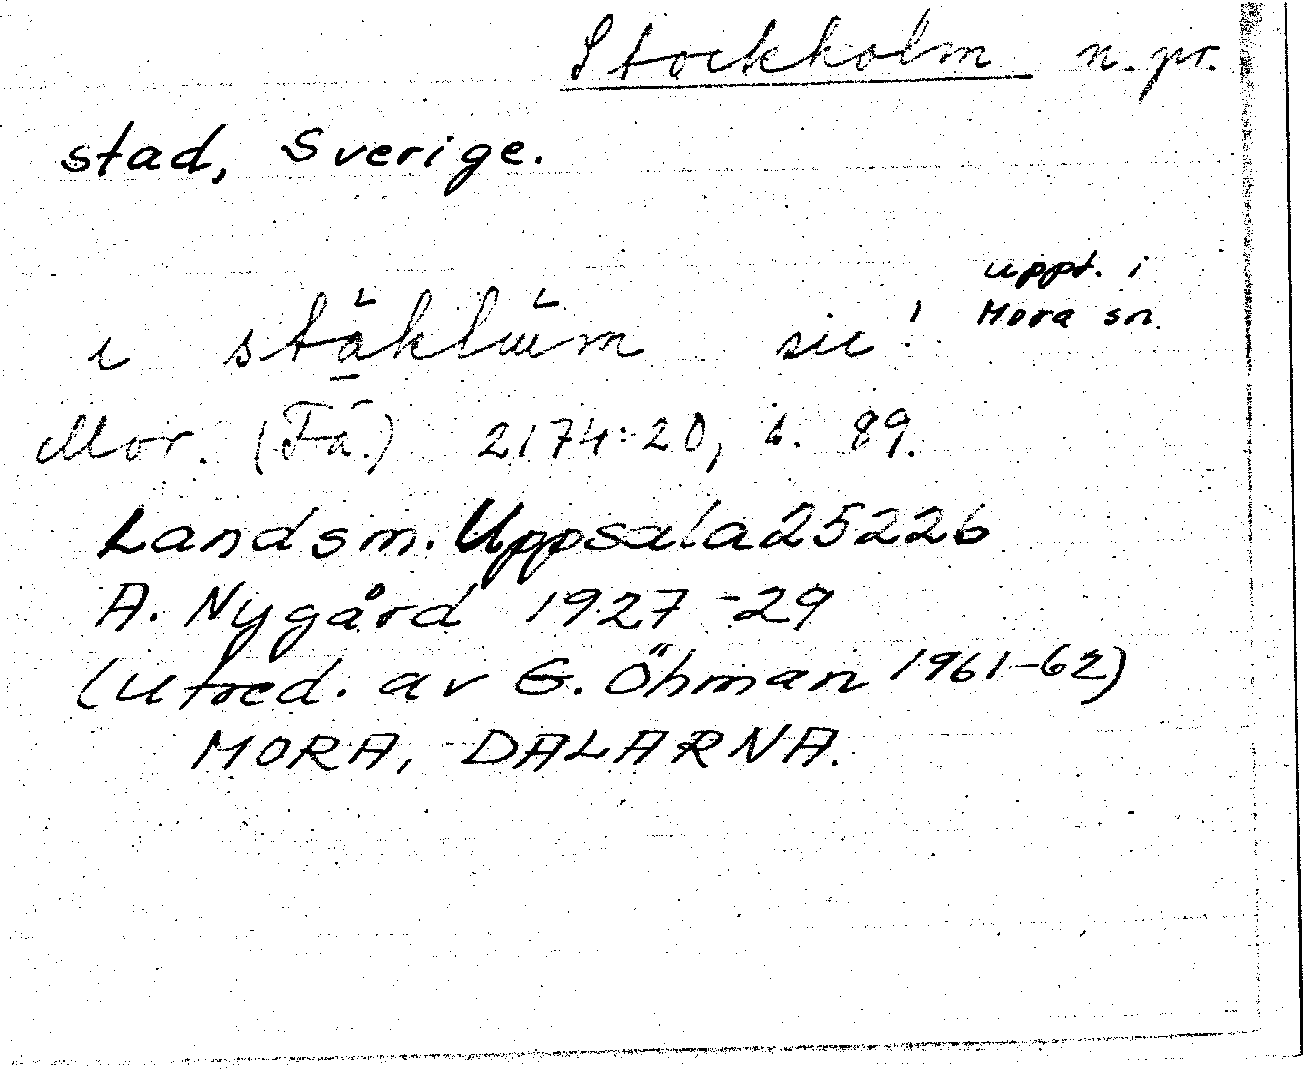 Stockholm n. pr.
stad, Sverige.
uppt. i
Mora sn.
i stäkluim sic!
Mor. (Få.) 2174:20, s. 89.
Landsm. Uppsala 25226
A. Nygård 1927-29
(Utred. av G. Öhman 1961-62)
MORA, DALARNA.